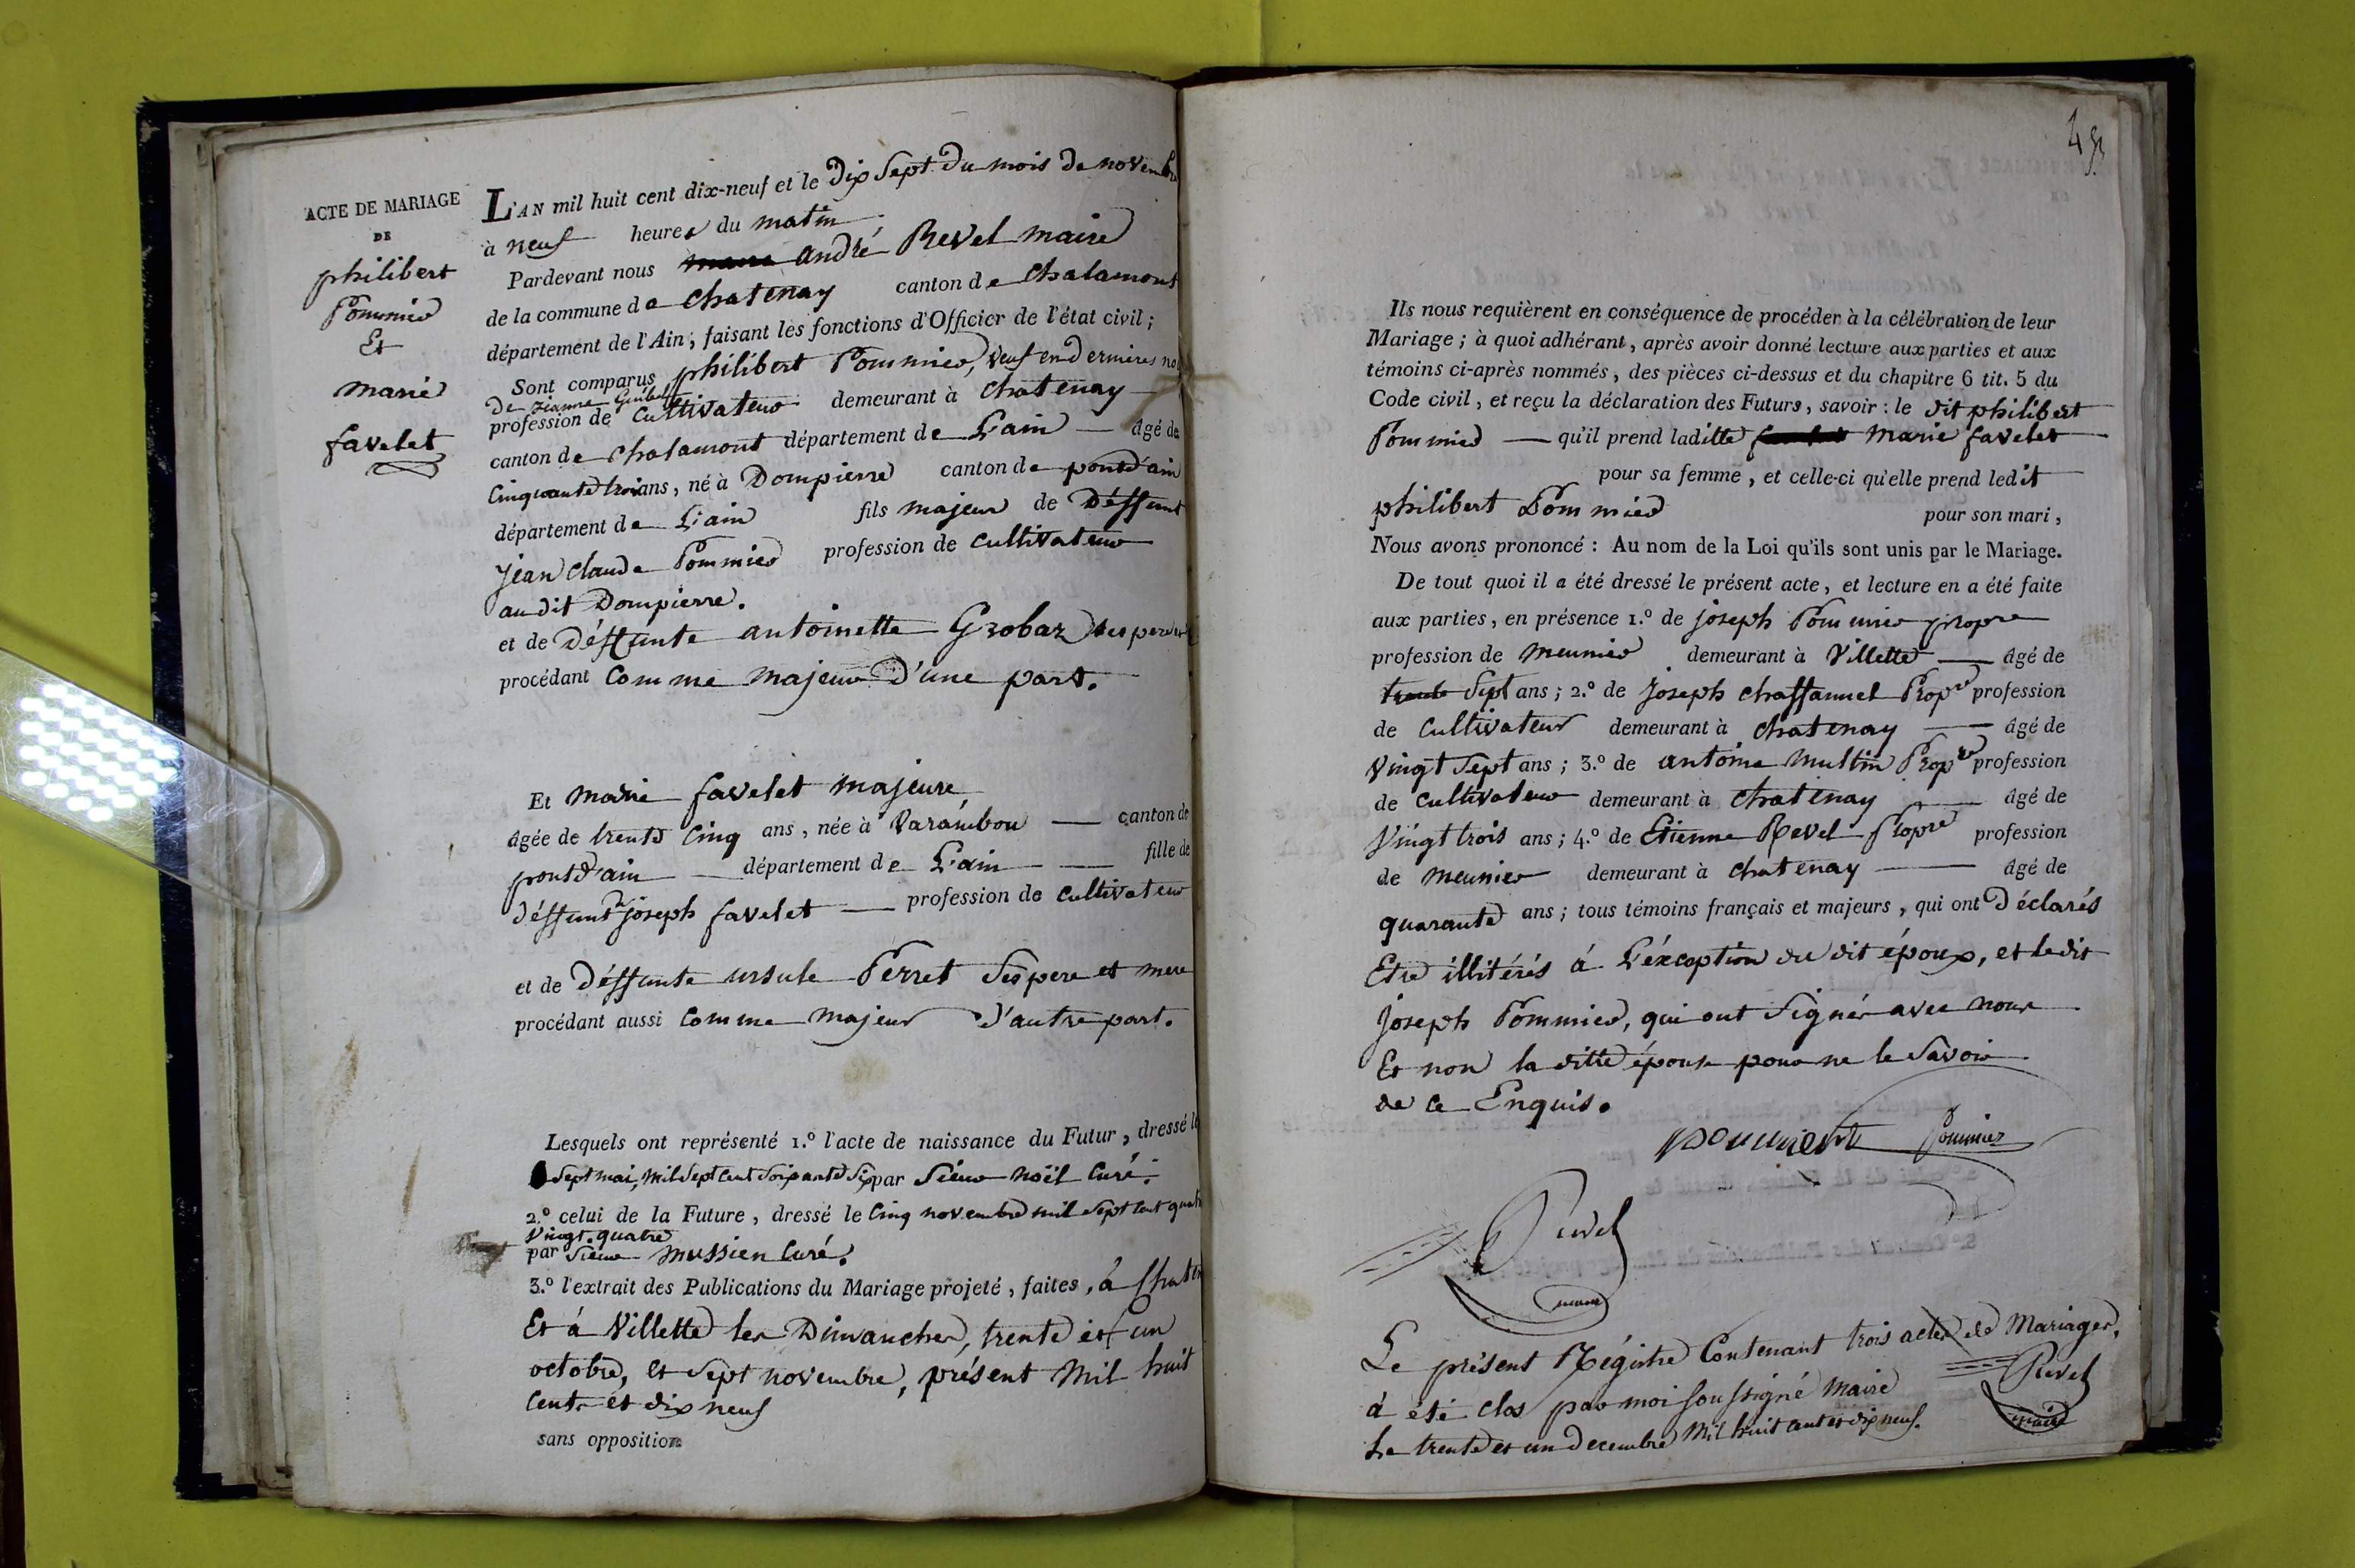 ACTE DE MARIAGE
DE
philibert
Pommier
Et
marie
favelet
L'AN mil huit cent dix-neuf et le Dix Sept Du mois de novembre
à neuf heures du matin
Pardevant nous andré Revel maire
de la commune de Chatenay canton de Chalamont
département de l'Ain, faisant les fonctions d'Officier de l'état civil;
Sont comparus philibert Pommier, veuf en dernières
de
profession de Cultivateur demeurant à Chatenay
canton de Chalamont département de L'ain âgé de
Cinquante trois ans, né à Dompierre canton de pontd'ain
département de L'ain fils majeur de Déffunt
Jean Claude Pommier profession de Cultivateur
audit Dompierre.
et de Déffunte antoinette Grobaz ses pere et
procédant Comme majeur D'une part.
Et marie favelet majeure
âgée de trente Cinq ans, née à Varambon canton de
pontd'ain département de L'ain fille de
déffunt joseph favelet profession de Cultivateur
et de Déffunte ursule Perret Ses pere et mere
procédant aussi Comme majeur d'autre part.
Lesquels ont représenté 1.º l'acte de naissance du Futur, dressé le
Sept mai, mil Sept Cent Soixante Six par Sieur noël Curé.
2.º celui de la Future, dressé le Cinq novembre mil Sept Cent quatre
Vingt. quatre
par Sieur mussien Curé.
3.º l'extrait des Publications du Mariage projeté, faites, à Chaten
Et à Villette les Dimanches, trente et un
octobre, et Sept novembre, présent Mil huit
Cents et dix neuf
sans opposition
Ils nous requièrent en conséquence de procéder à la célébration de leur
Mariage; à quoi adhérant, après avoir donné lecture aux parties et aux
témoins ci-après nommés, des pièces ci-dessus et du chapitre 6 tit. 5 du
Code civil, et reçu la déclaration des Futurs, savoir: le dit philibert
Pommier qu'il prend laditte Marie favelet
pour sa femme, et celle-ci qu'elle prend ledit
philibert Pommier pour son mari,
Nous avons prononcé: Au nom de la Loi qu'ils sont unis par le Mariage.
De tout quoi il a été dressé le présent acte, et lecture en a été faite
aux parties, en présence 1.º de joseph Pommier propre
profession de meunier demeurant à Villette âgé de
trente Sept ans; 2.º de Joseph Chaffannel Propre profession
de Cultivateur demeurant à Chatenay âgé de
Vingt Sept ans; 3.º de antoine Multin Propre profession
de Cultivateur demeurant à Chatenay âgé de
Vingt trois ans; 4.º de Etienne Revel Propre profession
de meunier demeurant à Chatenay âgé de
quarante ans; tous témoins français et majeurs, qui ont Déclarés
Etre illitérés à L'éxception du dit époux, et ledit
Joseph Pommier, qui ont Signés avec nous
Et non la ditte épouse pour ne le Savoir
de ce Enquis.
Pommier
Revel
maire
Le présent Régistre Contenant trois actes de Mariages,
à été clos par moi soussigné Maire
Le trente et un Decembre Mil huit cent et dix neuf.
Revel
maire